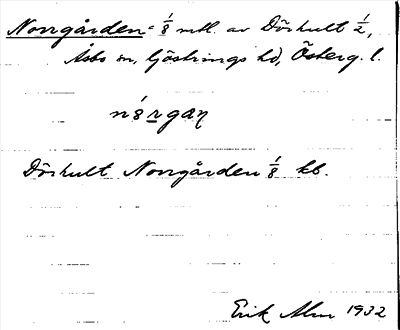 Norrgården = 1/8 mtl. av Dörhult 1/2,
Åsbo sn, Göstrings hd, Österg. l.
Dörhult Norrgården 1/8 kb.
Erik Alm 1932